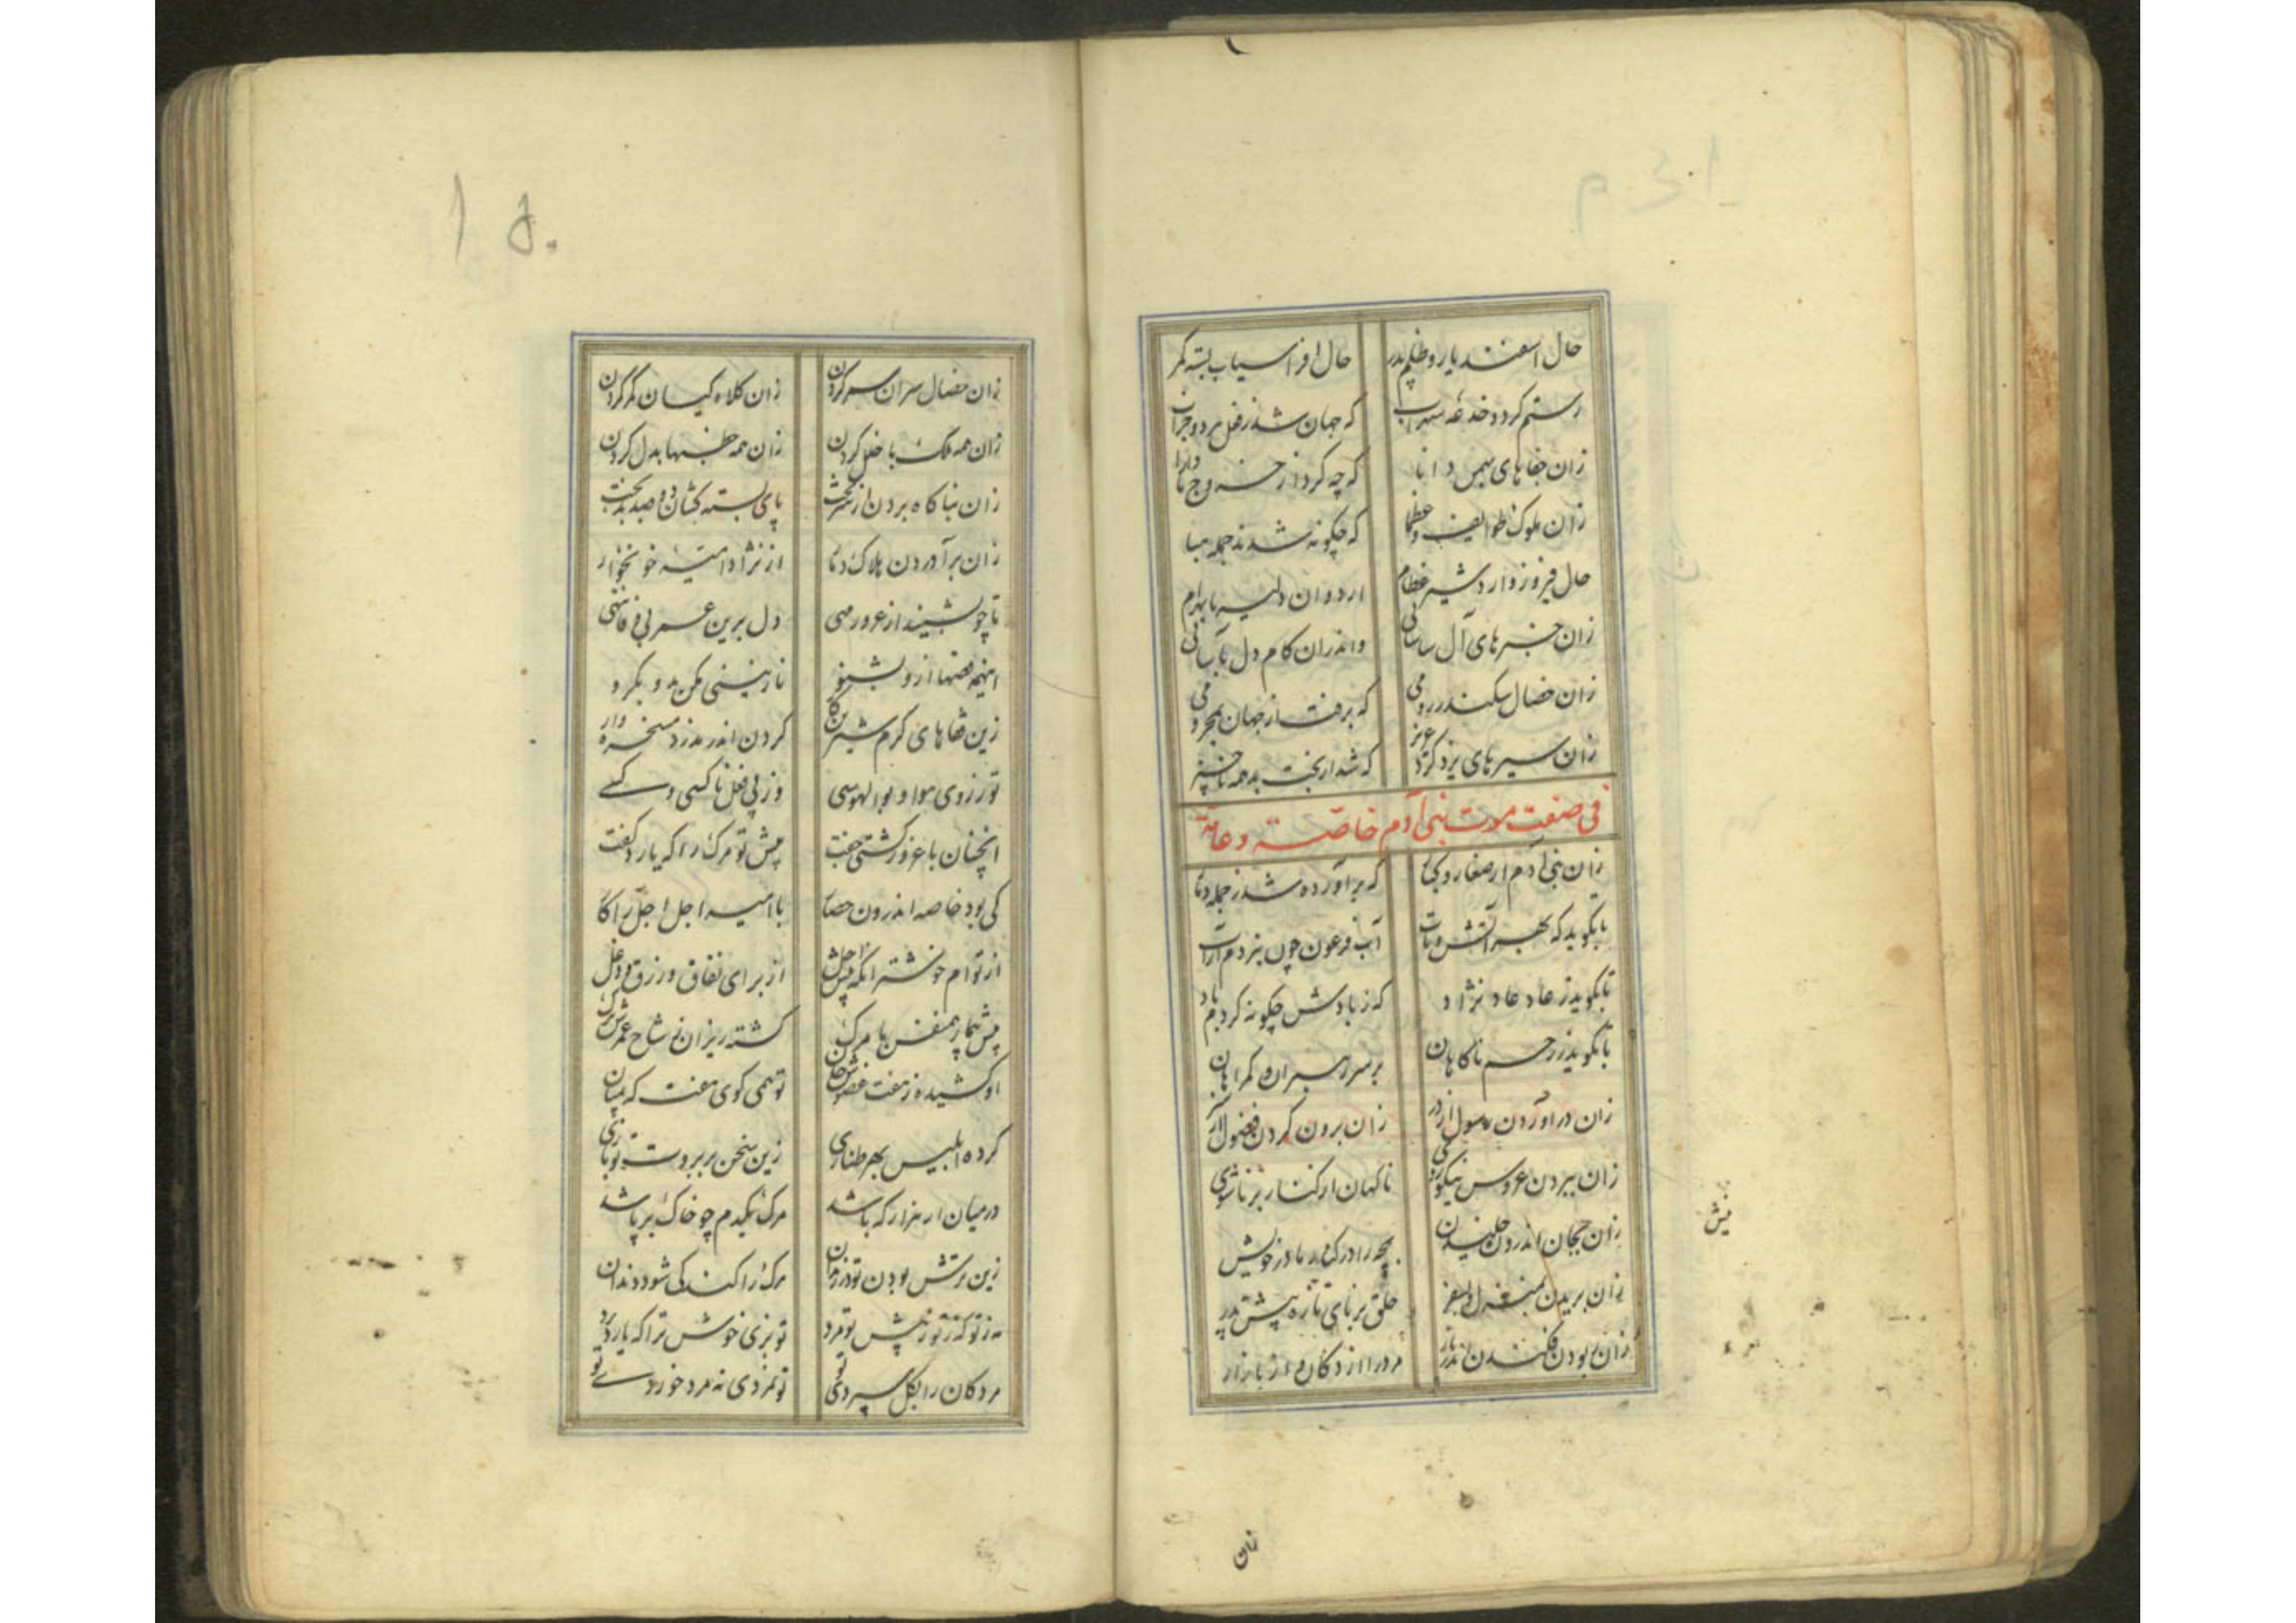 حال اسفندیار و ظلم پدر
حال افراسیاب بسته کمر
رستم گرد و خدعهٔ سهراب
که جهان شد ز فعل مرد و خراب
زان جفاهای بهمن دانا
زان ملوک طوایف و عظما
که چگونه شدند جمله هبا
حال فیروز و اردشیر عظام
اردوان دلیر با بهرام
زان خبرهای آل ساسانی
واندران کام دل بآسانی
زان خصال سکندر رومی
که برفت از جهان بمحرومی
زان سیرهای یزدگرد عزیز
که شد از بخت بد همه ناچیز
فی صفت موت بنی آدم خاصته و عامته
زان بنی آدم از صغار و کبار
که برآورده شد ز جمله دمار
تا بگوید که بهر آتش و تاب
آب فرعون چون ببرد مآب
تا بگوید ز عاد عاد نژاد
که ز بادش چگونه کرد بباد
تا بگوید ز رحم ناگاهان
بر سر رهبران گمراهان
زان در آوردن مامول از در
زان برون کردن فضول
زان ببردن عروس نیکوروی
ناگهان از کنار برنا شوی
زان حجان اندرون خلیدن
بچه را در کنار مادر خویش
زان بریدن
حلق برنای تازه پیش پدر
زان ربودن فکندن اندر نار
مرد را از دکان و از بازار
نیش
زان
۱۵۰
زان خصال سران سر کردن
زان کلاه کیان کمر کردن
زان همه ملک با خلل کردن
زان همه بدل کردن
زان بناگاه بردن از سر تخت
پای بسته کشان دو صد بدبخت
زان برآوردن هلاک و دمار
از نژاد امیهٔ خونخوار
تا چو بشنید از غرور مهی
دل برین عمر بی وفا ننهی
اینهمه قصها ازو بشنو
نازنینی مکن بد و بگرو
زین قفاهای گرم شیرین کار
کردن اندر مدزد مسخره وار
تو ز روی هوا و بوالهوسی
وز پی فعل ناکسی و کسی
آنچنان با غرور گشتی جفت
پیش تو مرگ را که یارد گفت
کی بود خاصه اندرون حصار
با امیر اجل اجل را کار
از تو ام خوشتر آنکه پیش اجل
از برای نفاق و زرق و دغل
پیش بیمار همنفس با مرگ
گشته ریزان ز شاخ عمرش برگ
او کشیده ز هفت عضوش جان
تو همی گوی هفت که پنهان
کرده ابلیس بهر طنازی
زین سخن بر بروت تو بازی
در میان ار هزار که باشد
مرگ یکدم چو خاک بر پاشد
زین ترش بودن تو در زندان
مرگ را کند کی شود دندان
مردگان را بگل سپردی تو
تو نمردی نه مرد خوردی تو